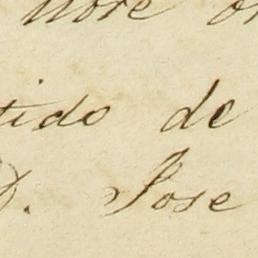 tido de
D. Jose